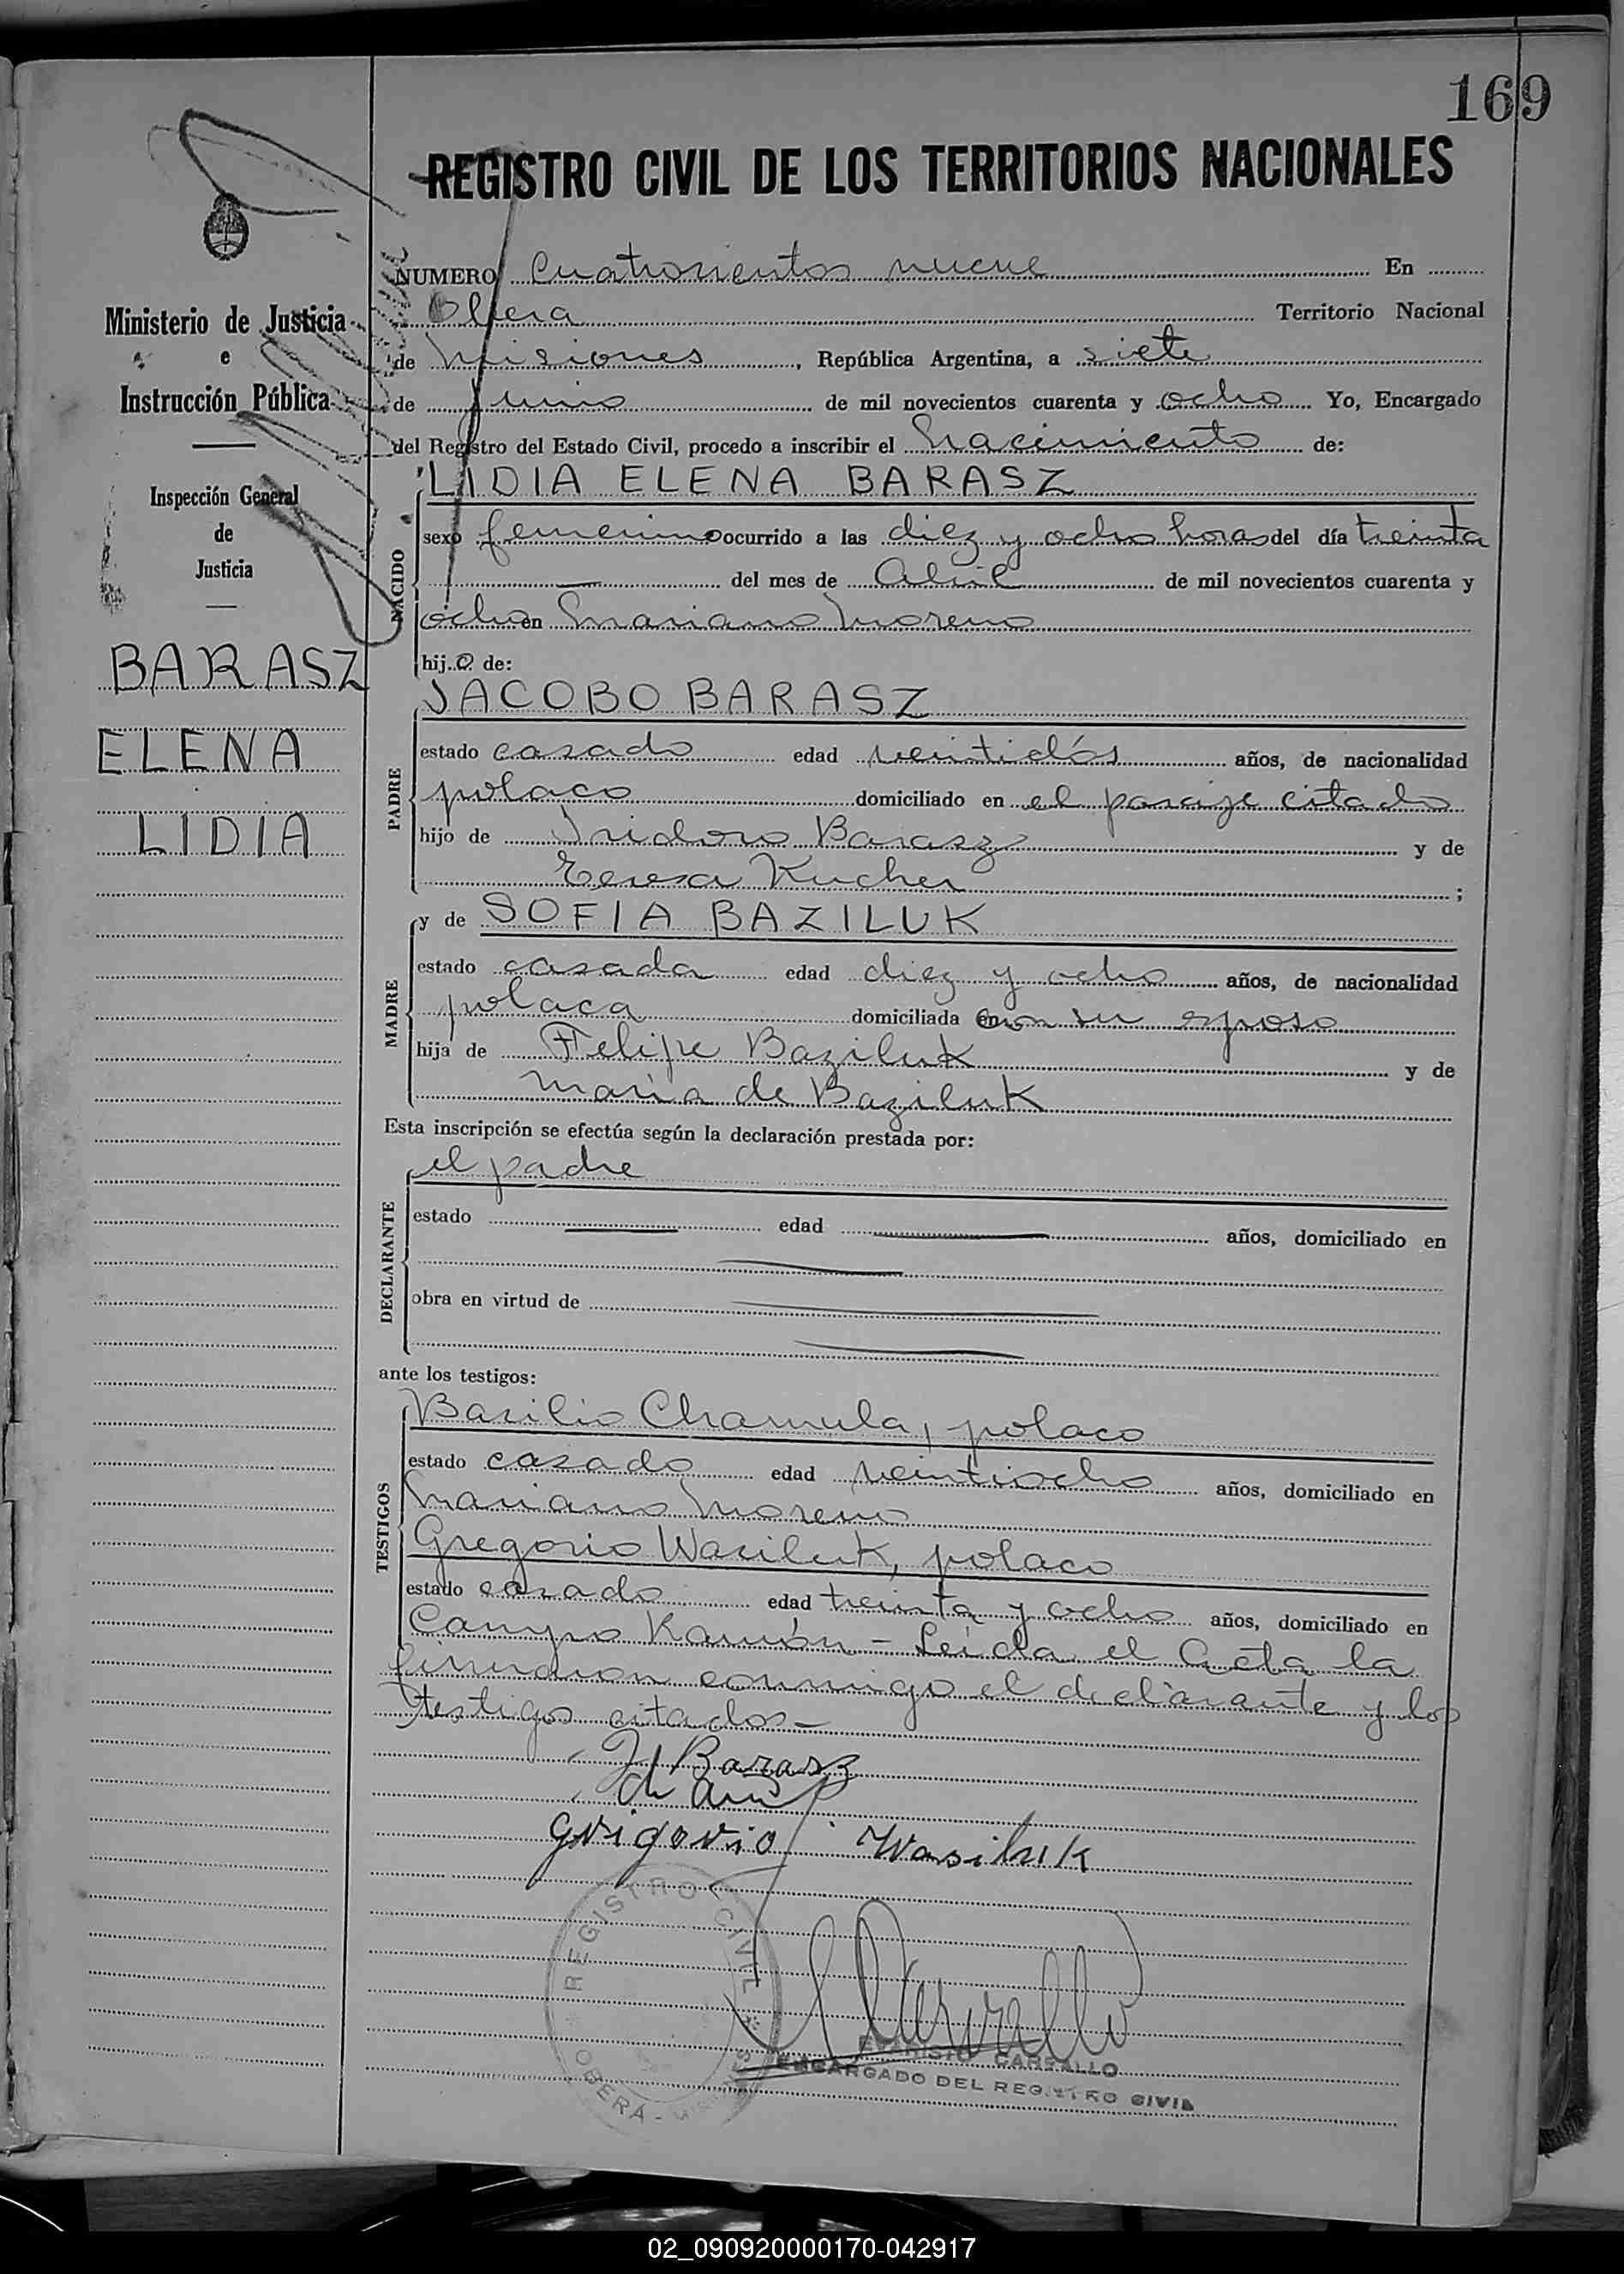 169
REGISTRO CIVIL DE LOS TERRITORIOS NACIONALES
Ministerio de Justicia
e
Instrucción Pública
Inspección General
de
Justicia
BARASZ
ELENA
LIDIA
NUMERO Cuatrocientos nueve En
Obera Territorio Nacional
de Misiones, República Argentina, a siete
de Junio de mil novecientos cuarenta y ocho Yo, Encargado
del Registro del Estado Civil, procedo a inscribir el Nacimiento de:
NACIDO
LIDIA ELENA BARASZ
sexo femenino ocurrido a las diez y ocho horas del día treinta
— del mes de Abril de mil novecientos cuarenta y
ocho en Mariano Moreno
hija de:
PADRE
JACOBO BARASZ
estado casado edad veintidós años, de nacionalidad
polaco domiciliado en el paraje citado
hijo de Isidoro Barasz y de
Teresa Kucher ;
MADRE
y de SOFIA BAZILUK
estado casada edad diez y ocho años, de nacionalidad
polaca domiciliada con su esposo
hija de Felipe Baziluk y de
Maria de Baziluk
Esta inscripción se efectúa según la declaración prestada por:
DECLARANTE
el padre
estado — edad — años, domiciliado en
obra en virtud de —
ante los testigos:
TESTIGOS
Basilio Chamula, polaco
estado casado edad veintiocho años, domiciliado en
Mariano Moreno
Gregorio Wasiluk, polaco
estado casado edad treinta y ocho años, domiciliado en
Campo Ramón – Leída el Acta la
firmaron conmigo el declarante y los
testigos citados –
J Barasz
Grigorio Wasiluk
REGISTRO CIVIL
OBERA - MISIONES
EVARISTO CARBALLO
ENCARGADO DEL REGISTRO CIVIL
02_090920000170-042917